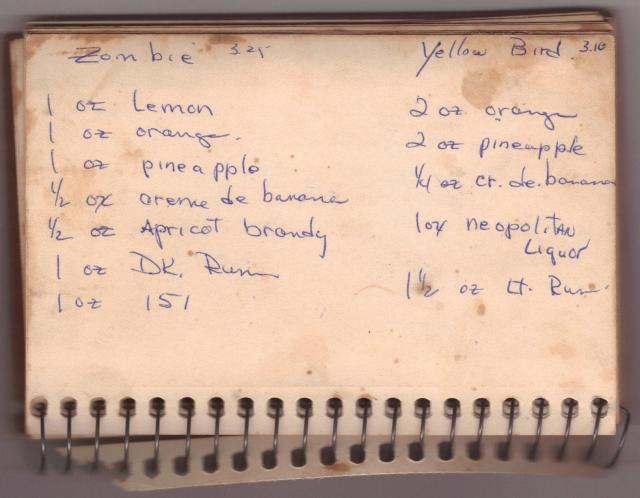 Zombie 3.25
1 oz Lemon
1 oz orange.
1 oz pineapple
1/2 oz creme de banana
1/2 oz Apricot brandy
1 oz DK. Rum
1 oz 151
Yellow Bird 3.10
2 oz orange
2 oz pineapple
1/4 oz cr. de. banana
1 oz neopolitan
Liquor
1 1/2 oz Lt. Rum.